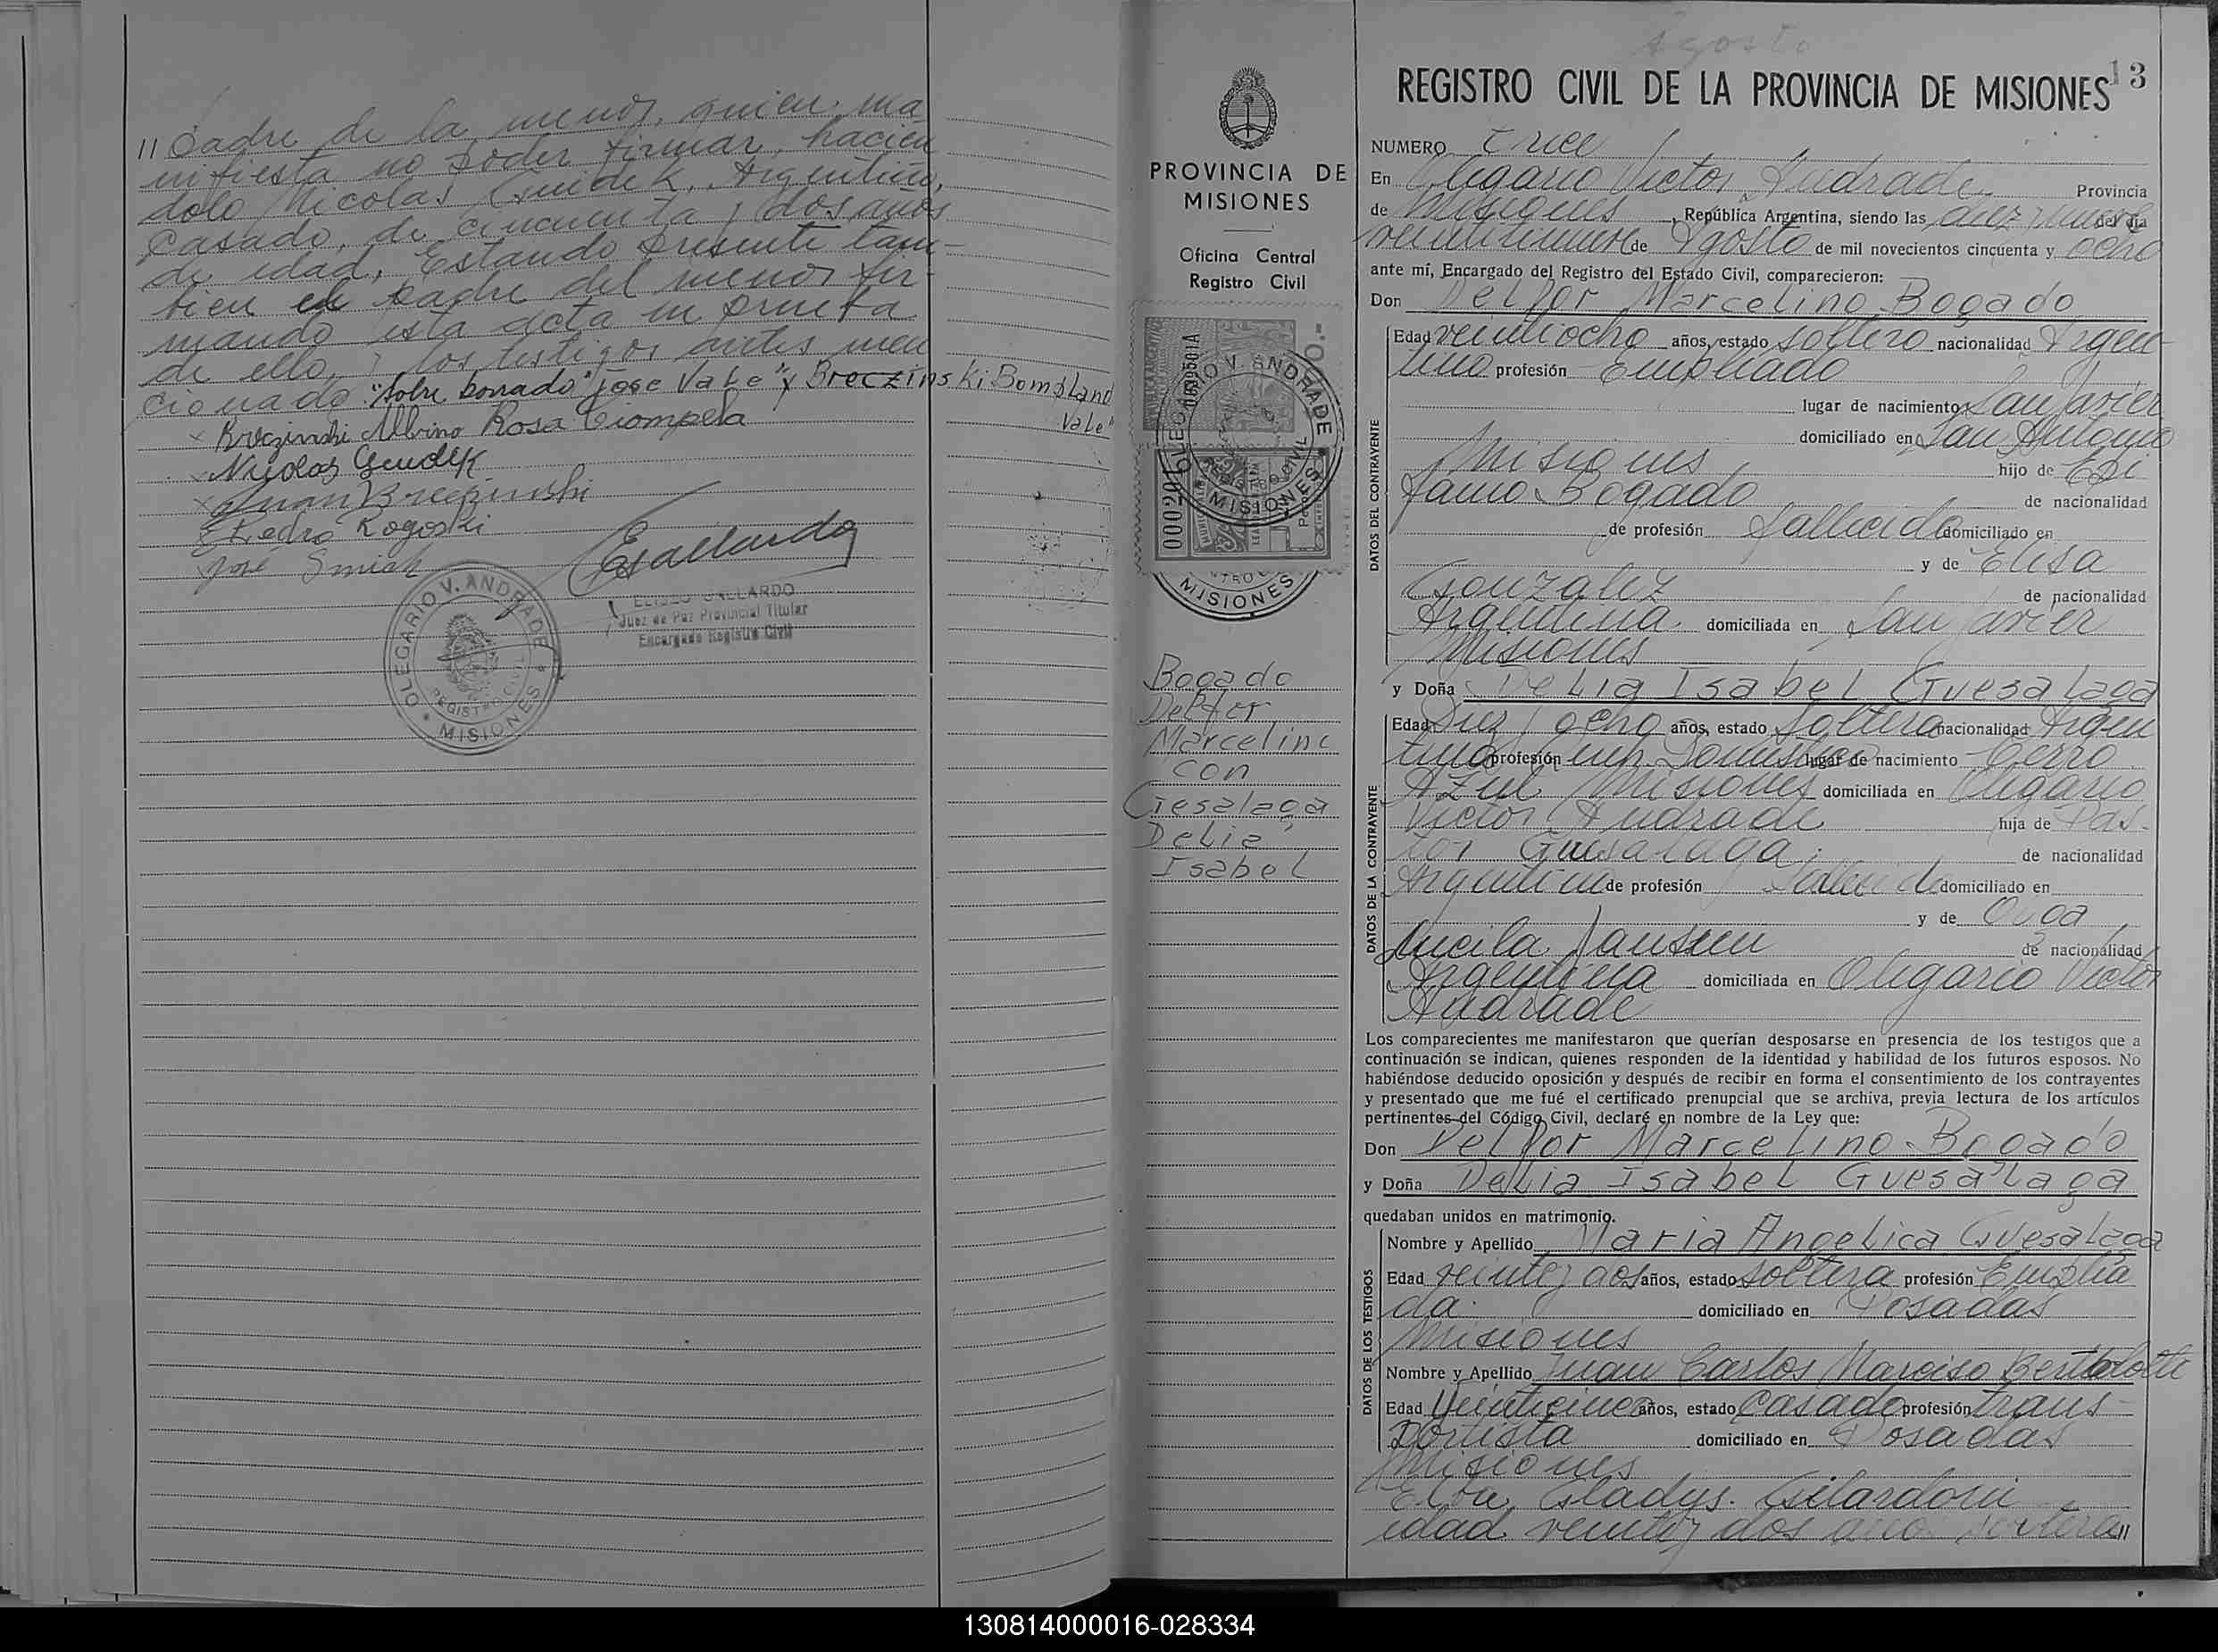 " Padre de la menor, quien ma
nifiesta no poder firmar, hacien
dolo Nicolas Guidek, Argentino,
casado, de cincuenta y dos años
de edad, Estando presente tam-
bien el padre del menor fir-
mando esta acta en prueba
de ello, y los testigos antes men
cionado "sobre borrado" Jose Vale" y Breczinski Bompland
Vale"
x Breczinski Albino Rosa Ciompela
x Nicolas Guidek
x Juan Breczinski
x Pedro Rogoski
x José Smiak
EGallardo
ELISEO GALLARDO
Juez de Paz Provincial Titular
Encargado Registro Civil
OLEGARIO V. ANDRADE
REGISTRO CIVIL
* MISIONES *
PROVINCIA DE
MISIONES
Oficina Central
Registro Civil
OLEGARIO V. ANDRADE
REGISTRO CIVIL
* MISIONES *
MISIONES
Bogado
Delfor
Marcelino
con
Gesalaga
Delia
Isabel
Agosto
REGISTRO CIVIL DE LA PROVINCIA DE MISIONES 13
NUMERO Trece
En Olegario Victor Andrade Provincia
de Misiones, República Argentina, siendo las diez y nueve del día
veintinueve de Agosto de mil novecientos cincuenta y ocho
ante mí, Encargado del Registro del Estado Civil, comparecieron:
Don Delfor Marcelino Bogado
DATOS DEL CONTRAYENTE
Edad veintiocho años, estado soltero nacionalidad Argen
tino profesión Empleado
lugar de nacimiento San Javier
domiciliado en San Antonio
Misiones hijo de Epi
fanio Bogado de nacionalidad
de profesión fallecido domiciliado en
y de Elisa
Gonzalez de nacionalidad
Argentina domiciliada en San Javier
Misiones
y Doña Delia Isabel Guesalaga
DATOS DE LA CONTRAYENTE
Edad Diez y ocho años, estado Soltera nacionalidad Argen
tina profesión lugar de nacimiento Cerro
Azul Misiones domiciliada en Olegario
Victor Andrade hija de Pas-
tor Guesalaga de nacionalidad
Argentina de profesión Fallecido domiciliado en
y de Olga
Lucila Janssen de nacionalidad
Argentina domiciliada en Olegario Victor
Andrade
Los comparecientes me manifestaron que querían desposarse en presencia de los testigos que a
continuación se indican, quienes responden de la identidad y habilidad de los futuros esposos. No
habiéndose deducido oposición y después de recibir en forma el consentimiento de los contrayentes
y presentado que me fué el certificado prenupcial que se archiva, previa lectura de los artículos
pertinentes del Código Civil, declaré en nombre de la Ley que:
Don Delfor Marcelino Bogado
y Doña Delia Isabel Guesalaga
quedaban unidos en matrimonio.
DATOS DE LOS TESTIGOS
Nombre y Apellido Maria Angelica Guesalaga
Edad veinte y dos años, estado soltera profesión Emplea
da. domiciliado en Posadas
Misiones
Nombre y Apellido Juan Carlos Narciso Bertolotti
Edad Veinticinco años, estado casado profesión trans-
portista domiciliado en Posadas
Misiones
Gladys Gilardoni
edad veinte y dos soltera "
130814000016-028334